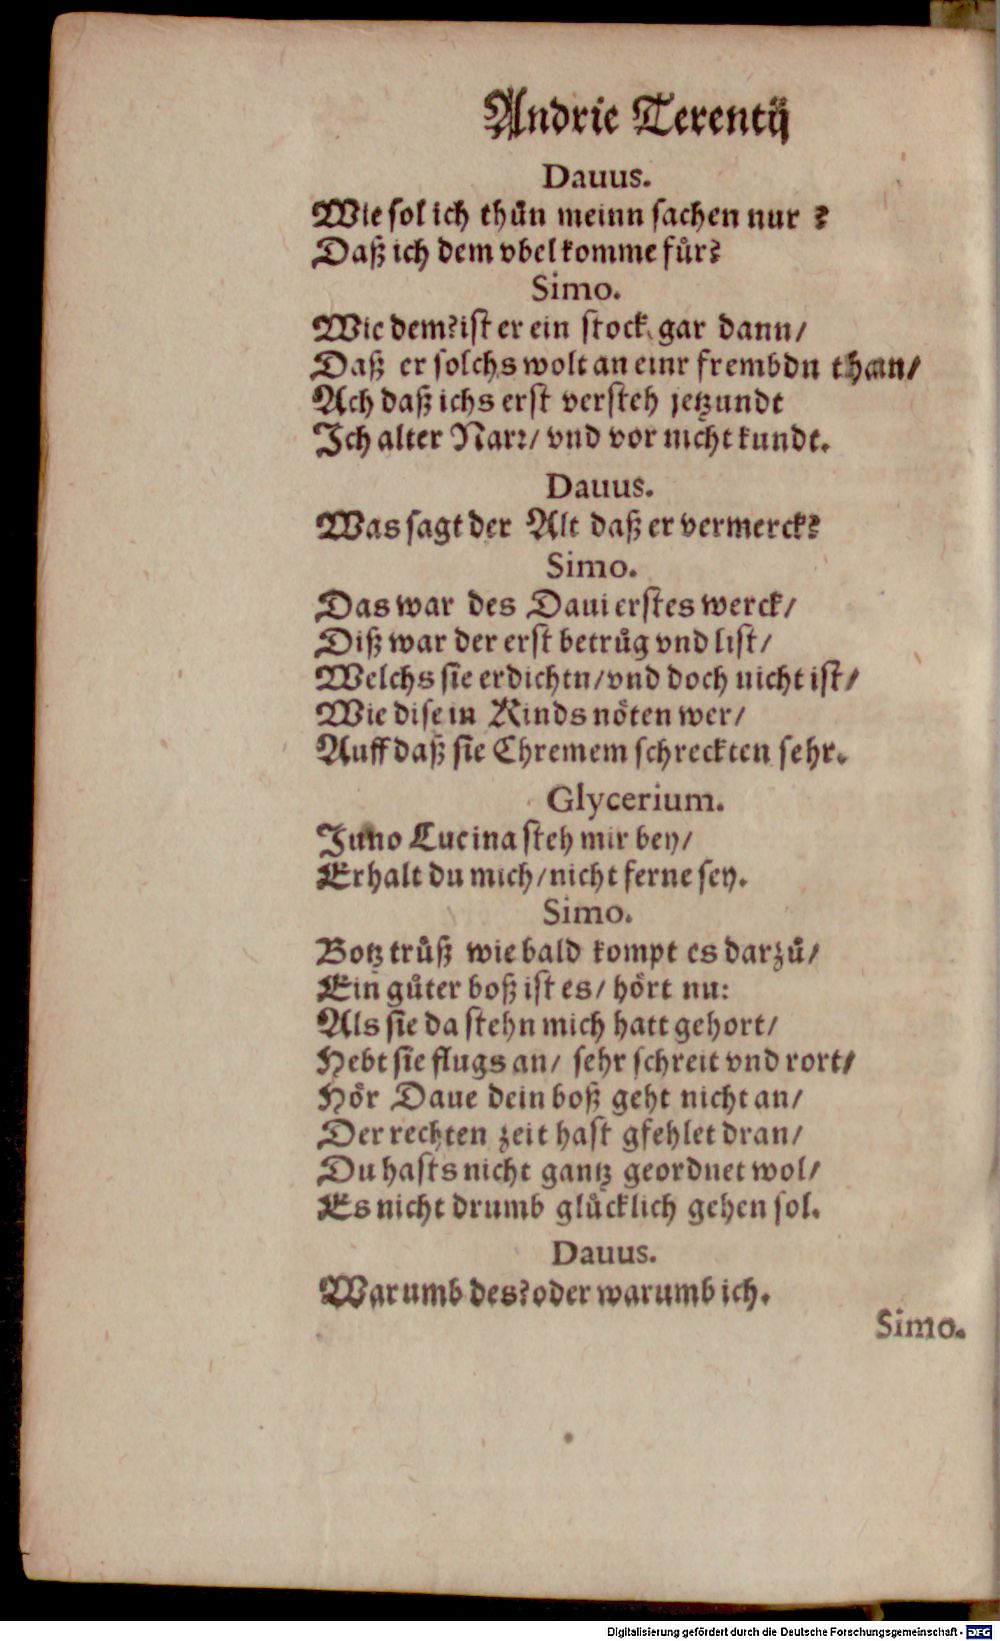 Andrie Terentij
Dauus.
Wie sol ich thůn meinn sachen nur ?
Daß ich dem vbel komme fuͤr?
Simo.
Wie dem? ist er ein stock gar dann/
Daß er solchs wolt an einr frembdn than/
Ach daß ichs erst versteh jetzundt
Ich alter Narr/ vnd vor nicht kundt.
Dauus.
Was sagt der Alt daß er vermerck?
Simo.
Das war des Daui erstes werck/
Diß war der erst betrůg vnd list/
Welchs sie erdichtn/ vnd doch nicht ist/
Wie dise in Kinds nöten wer/
Auff daß sie Chremem schreckten sehr.
Glycerium.
Juno Lucina steh mir bey/
Erhalt du mich/ nicht ferne sey.
Simo.
Botz trůß wie bald kompt es darzů/
Ein gůter boß ist es/ hört nu:
Als sie da stehn mich hatt gehort/
Hebt sie flugs an/ sehr schreit vnd rort/
Hör Daue dein boß geht nicht an/
Der rechten zeit hast gfehlet dran/
Du hasts nicht gantz geordnet wol/
Es nicht drumb gluͤcklich gehen sol.
Dauus.
Warumb des? oder warumb ich.
Simo.
Digitalisierung gefördert durch die Deutsche Forschungsgemeinschaft - DFG